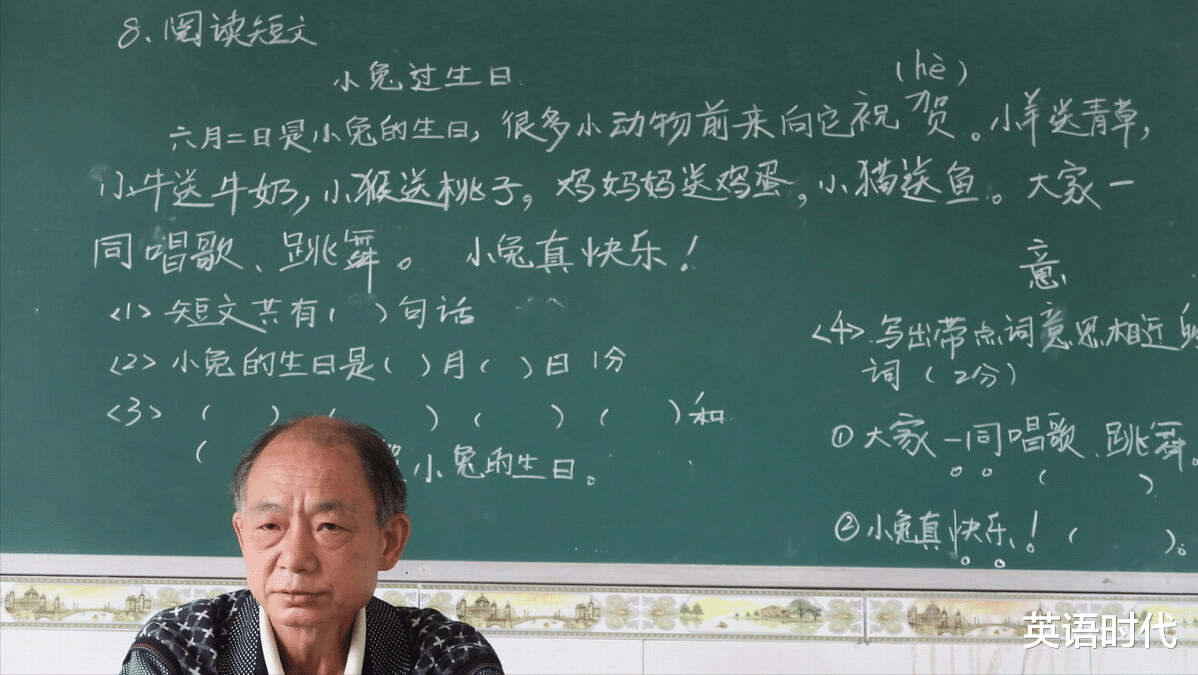 8、阅读短文
小兔过生日
(hè)
六月二日是小兔的生日，很多小动物前来向它祝贺。小羊送青草，
小牛送牛奶，小猴送桃子。鸡妈妈送鸡蛋，小猫送鱼。大家一
同唱歌、跳舞。 小兔真快乐！
<1> 短文共有( )句话
<2> 小兔的生日是( )月( )日 1分
<3> ( ) ( ) ( ) ( )和
( 小兔的生日。
意
<4> 写出带点词意思相近的
词（2分）
① 大家一同唱歌、跳舞。
( )
② 小兔真快乐！( )。
英语时代